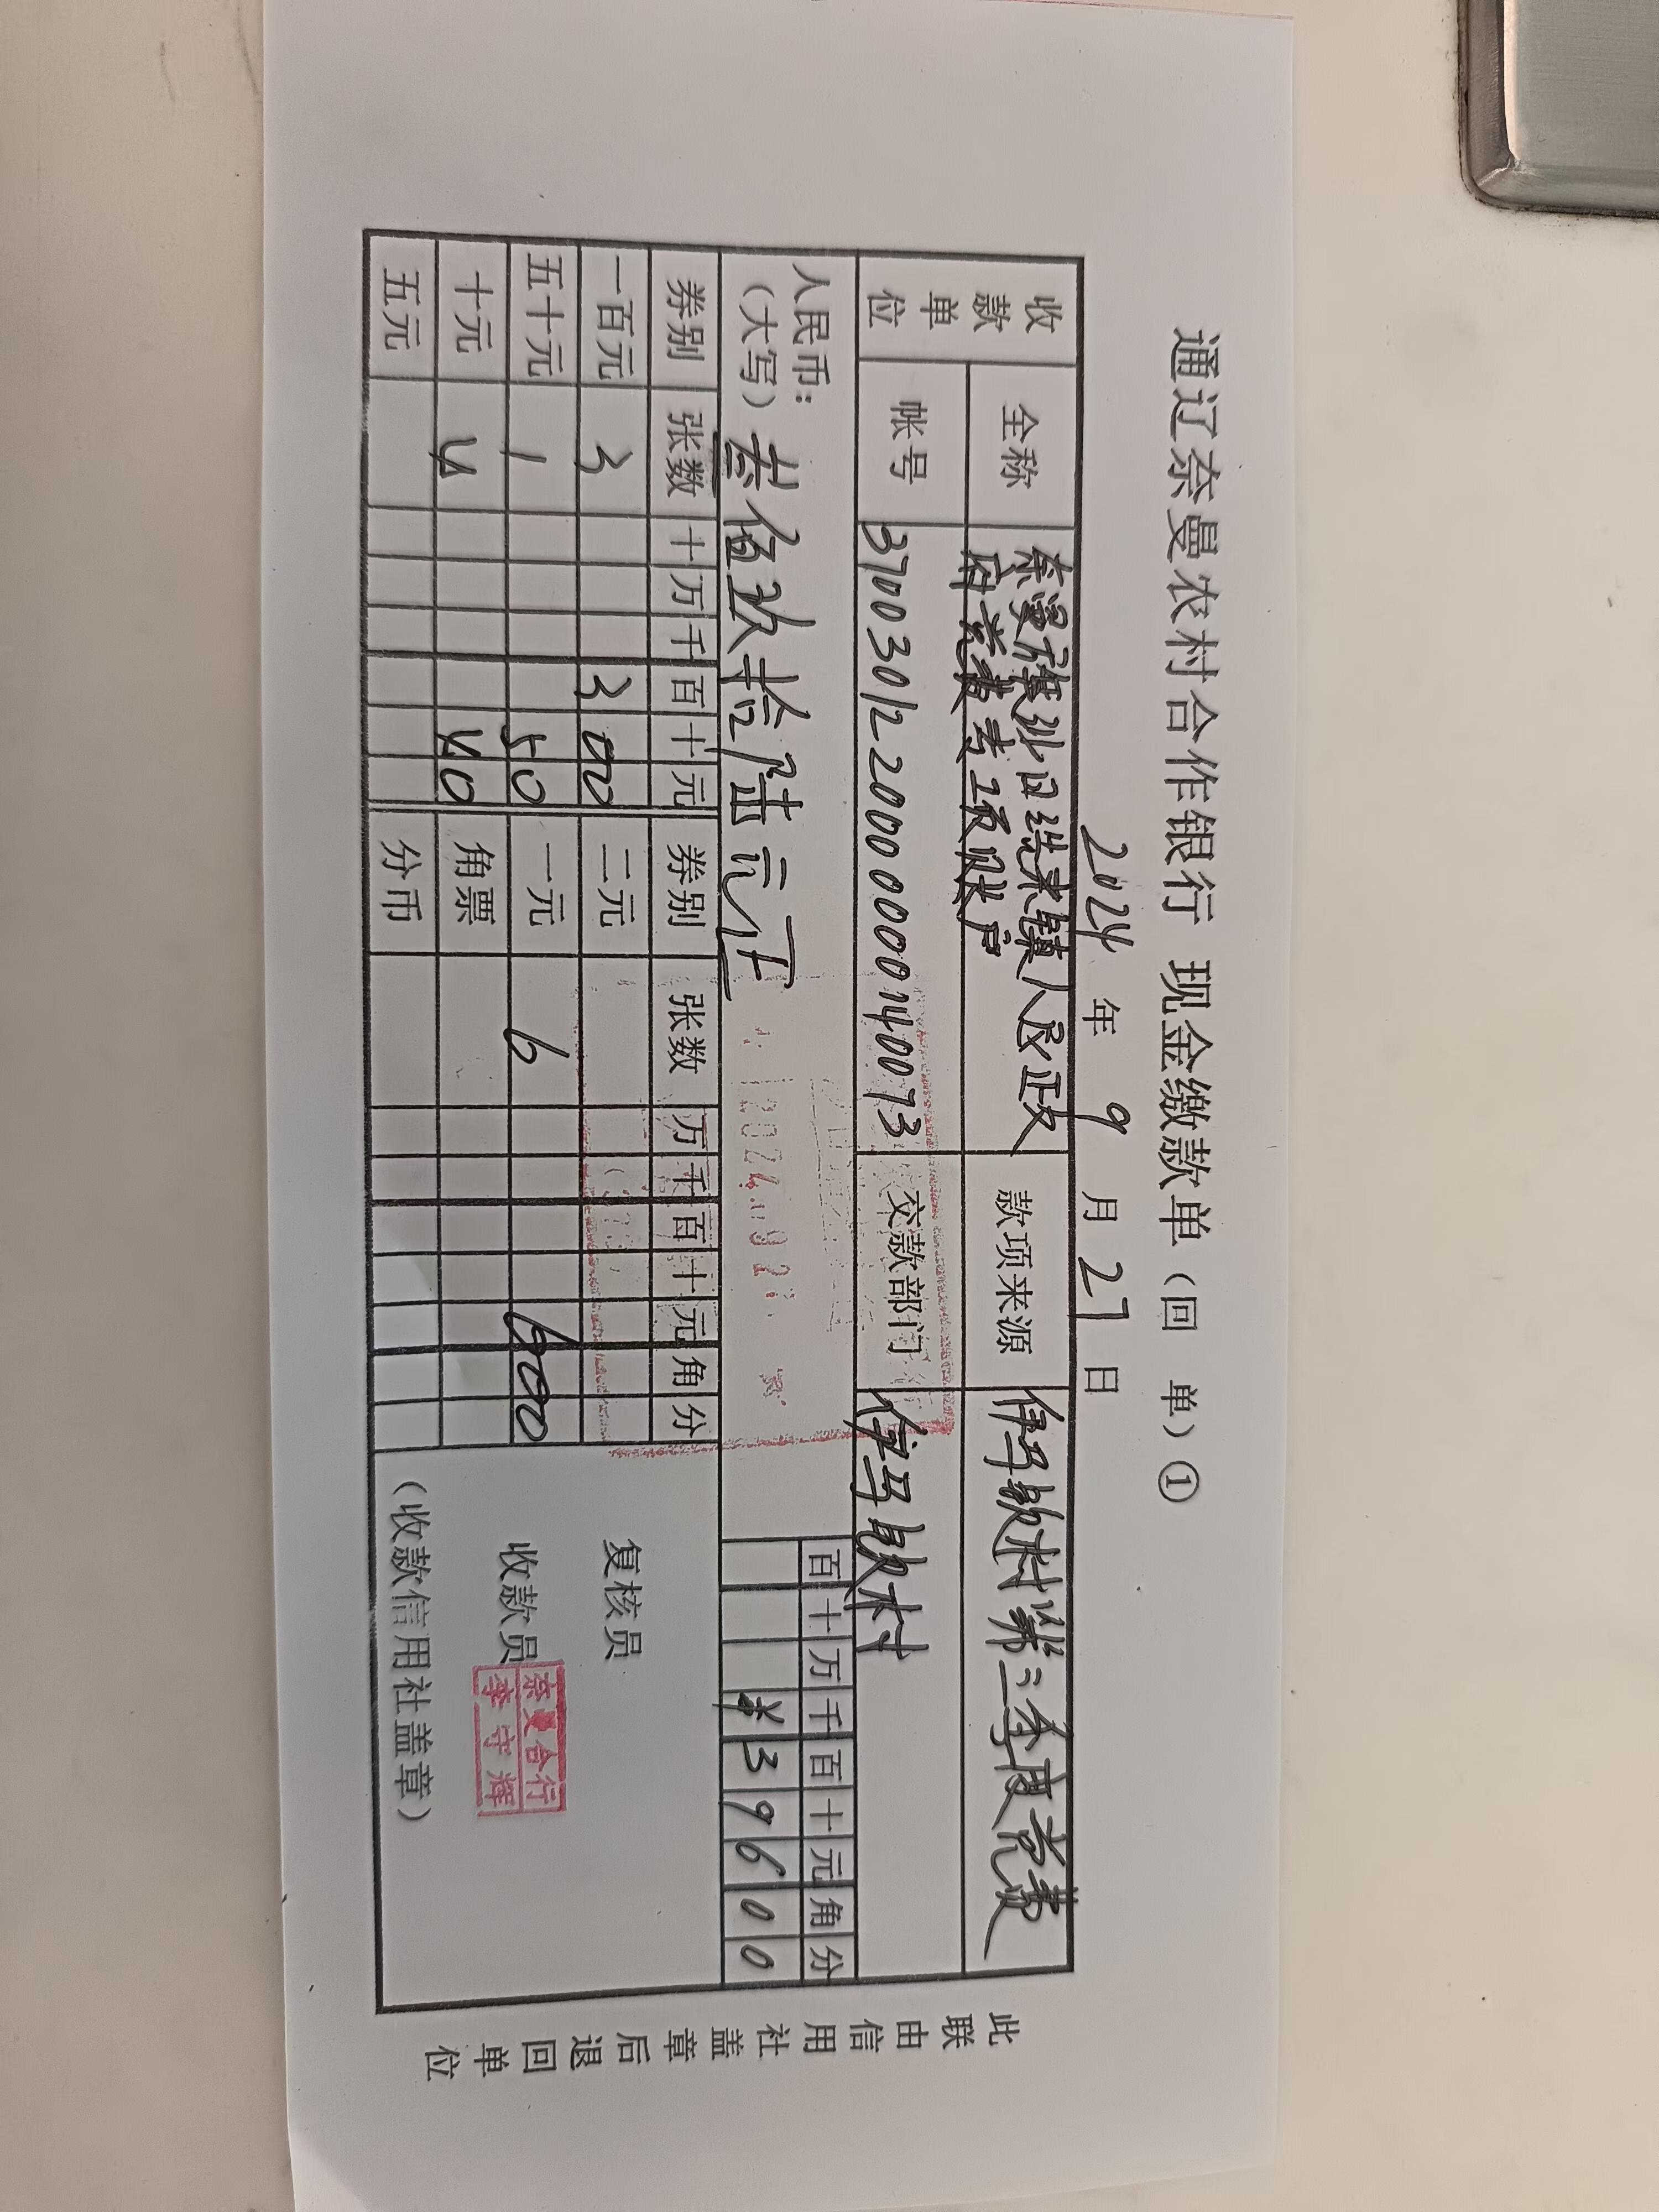 通辽奈曼农村合作银行 现金缴款单（回 单）①
2024 年 9 月 27 日
收款单位 全称 奈曼旗沙日浩来镇人民政府党费专项账户 款项来源 伊马钦村第三季度党费
帐号 3700301220000000140073 交款部门 伊马钦村
人民币：（大写） 叁佰玖拾陆元正 百 十 万 千 百 十 元 角 分
¥ 3 9 6 0 0
券别 张数 十 万 千 百 十 元 券别 张数 万 千 百 十 元 角 分
一百元 3 300 二元 复核员
五十元 1 50 一元 6 600 收款员
十元 4 40 角票
五元 分币 （收款信用社盖章）
奈曼合行
李守辉
此联由信用社盖章后退回单位